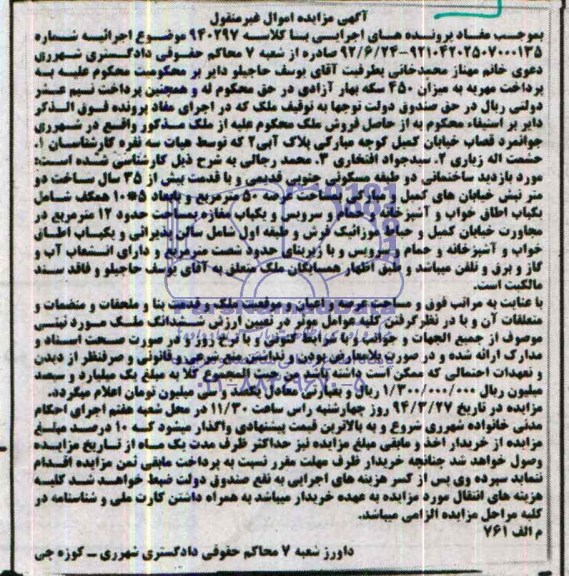 آگهی مزایده اموال غیرمنقول
بموجب مفاد پرونده های اجرایی بنا کلاسه ۹۴۰۲۹۷ موضوع اجرائیه شماره
۹۲۱۰۴۲۰۲۵۰۷۰۰۰۱۳۵-۹۲/۶/۲۴ صادره از شعبه ۷ محاکم حقوقی دادگستری شهرری
دعوی خانم مهناز محمدخانی بطرفیت آقای یوسف حاجیلو دایر بر محکومیت محکوم علیه به
پرداخت مهریه به میزان ۴۵۰ سکه بهار آزادی در حق محکوم له و همچنین پرداخت نیم عشر
دولتی ریال در حق صندوق دولت توجها به توقیف ملک که در اجرای مفاد پرونده فوق الذکر
دایر بر استیفاء محکوم به از حاصل فروش ملک محکوم علیه از ملک مذکور واقع در شهرری
جوانمرد قصاب خیابان کمیل کوچه مبارکی پلاک آبی ۲ که توسط هیات سه نفره کارشناسان ۱.
حشمت اله زیاری ۲. سیدجواد افتخاری ۳. محمد رجالی به شرح ذیل کارشناسی شده است:
مورد بازدید ساختمانی دو طبقه مسکونی جنوبی قدیمی و با قدمت بیش از ۳۵ سال ساخت دو
متر نبش خیابان های کمیل و مبارکی بمساحت عرصه ۵۰ مترمربع و بابعاد ۵*۱۰ همکف شامل
یکباب اطاق خواب و آشپزخانه و حمام و سرویس و یکباب مغازه بمساحت حدود ۱۲ مترمربع در
مجاورت خیابان کمیل و حیاط موزائیک فرش و طبقه اول شامل سالن پذیرائی و یکباب اطاق
خواب و آشپزخانه و حمام و سرویس و با زیربنای حدود شصت مترمربع و دارای انشعاب آب و
گاز و برق و تلفن میباشد و طبق اظهار همسایگان ملک متعلق به آقای یوسف حاجیلو و فاقد سند
مالکیت است.
با عنایت به مراتب فوق و مساحت عرصه و اعیان و موقعیت ملک و قدمت بنا و ملحقات و منضمات و
متعلقات آن و با در نظرگرفتن کلیه عوامل موثر در تعیین ارزش ششدانگ ملک مورد نیتسی
موصوف از جمیع الجهات و جوانب با شرایط کنونی و با نرخ روز و در صورت صحت اسناد و
مدارک ارائه شده و در صورت بلامعارض بودن و نداشتن منع شرعی و قانونی و صرفنظر از دیدن
و تعهدات احتمالی که ممکن است داشته باشد من حیث المجموع کلا به مبلغ یک میلیارد و سیصد
میلیون ریال ۱/۳۰۰/۰۰۰/۰۰۰ ریال و بعبارتی معادل یکصد و سی میلیون تومان اعلام میگردد.
مزایده در تاریخ ۹۴/۳/۲۷ روز چهارشنبه راس ساعت ۱۱/۳۰ در محل شعبه هفتم اجرای احکام
مدنی خانواده شهرری شروع و به بالاترین قیمت پیشنهادی واگذار میشود که ۱۰ درصد مبلغ
مزایده از خریدار اخذ و مابقی مبلغ مزایده نیز حداکثر ظرف مدت یک ماه از تاریخ مزایده
وصول خواهد شد چنانچه خریدار ظرف مهلت مقرر نسبت به پرداخت مابقی ثمن مزایده اقدام
ننماید سپرده وی پس از کسر هزینه های اجرایی به نفع صندوق دولت ضبط خواهد شد کلیه
هزینه های انتقال مورد مزایده به عهده خریدار میباشد به همراه داشتن کارت ملی و شناسنامه در
کلیه مراحل مزایده الزامی میباشد.
م الف ۷۶۱
داورز شعبه ۷ محاکم حقوقی دادگستری شهرری - کوزه چی
ParsNamadData
۰۲۱-۸۸۳۴۹۶۷۰-۵